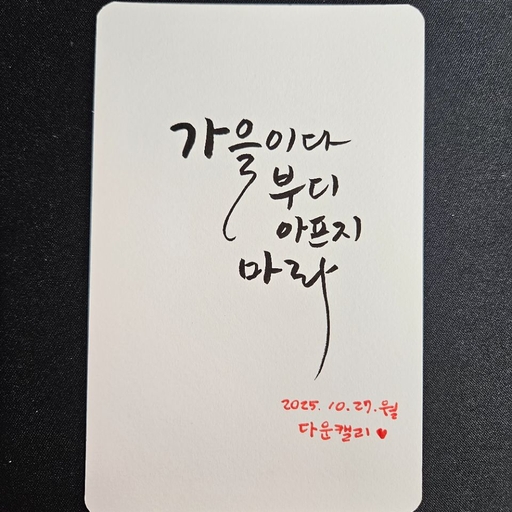 가을이다
부디
아프지
마라
2025. 10. 27. 월
다운캘리 ♥